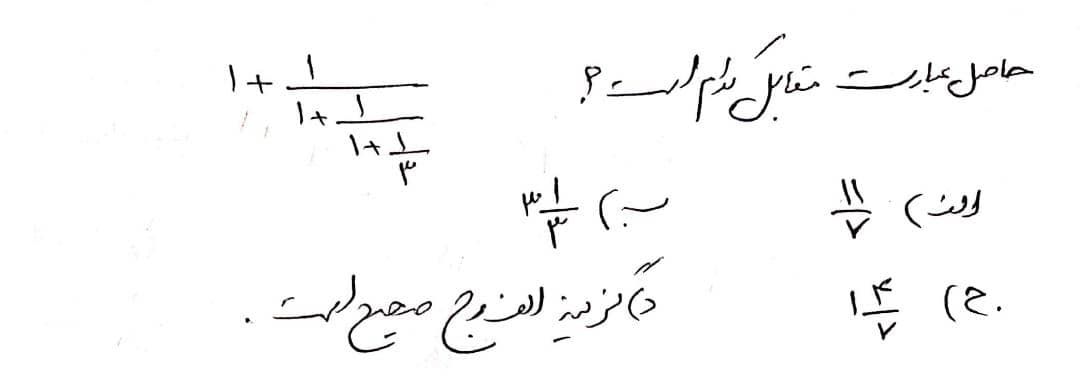 حاصل عبارت مقابل کدام است؟ ۱+۱/(۱+۱/(۱+۱/۳))
الف) ۱۱/۷ ب) ۳ ۱/۳
ج) ۱ ۴/۷ د) گزینه الف و ج صحیح است.